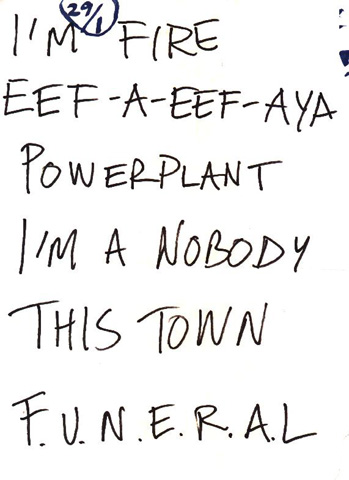 29/1
I'M FIRE
EEF-A-EEF-AYA
POWERPLANT
I'M A NOBODY
THIS TOWN
F.U.N.E.R.A.L